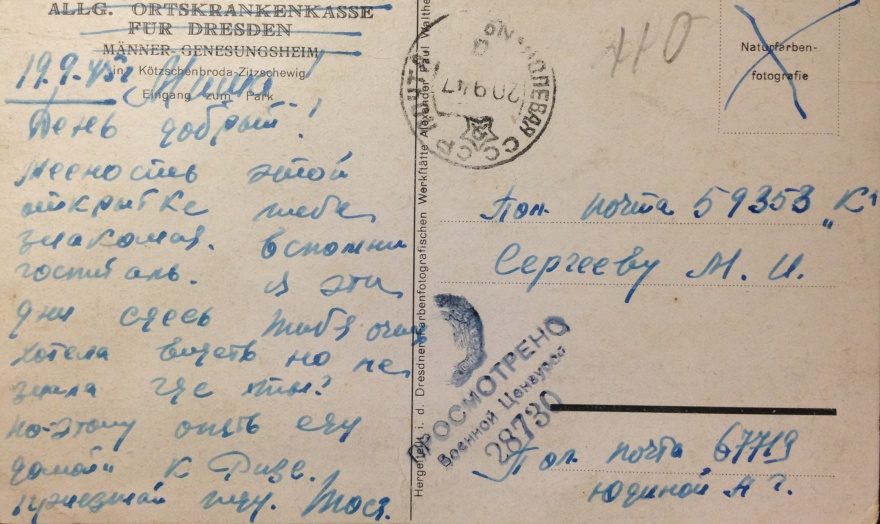 ALLG. ORTSKRANKENKASSE
FÜR DRESDEN
MÄNNER-GENESUNGSHEIM
in Kötzschenbroda-Zitzschewig
Eingang zum Park
19.9.45г Миша!
День добрый!
Месность этой
открытке тебе
знакомая. Вспомни
госпиталь. Я эти
дни сдесь тибя очень
хотела видеть но не
знала где ты?
по-этому опять еду
домой к Ризе.
Приезжай жду. Тося.
Hergestellt i. d. Dresdner Farbenfotografischen Werkstätte Alexander Paul Walthe
ПОЛЕВАЯ ПОЧТА СССР
20 9 47
110
Naturfarben-
fotografie
Пол. почта 59353 „К"
Сергееву М. И.
ПРОСМОТРЕНО
Военной Цензурой
28730
Пол почта 67719
Юдиной А Г.